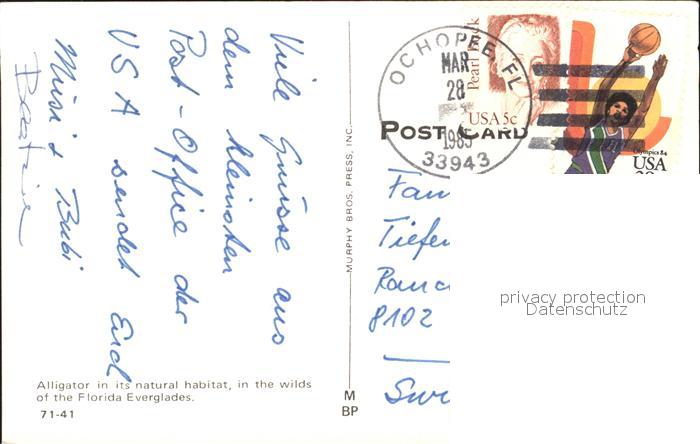 Viele Grüsse aus
dem kleinsten
Post-Office der
USA sendet Euch
Musi & Bubi
Alligator in its natural habitat, in the wilds
of the Florida Everglades.
71-41
MURPHY BROS. PRESS, INC.
M
BP
POST CARD
OCHOPEE, FL
MAR
28
1985
33943
Pearl Buck
USA 5c
Olympics 84
USA
Fam
Tiefen
Ranc
8102
privacy protection
Datenschutz